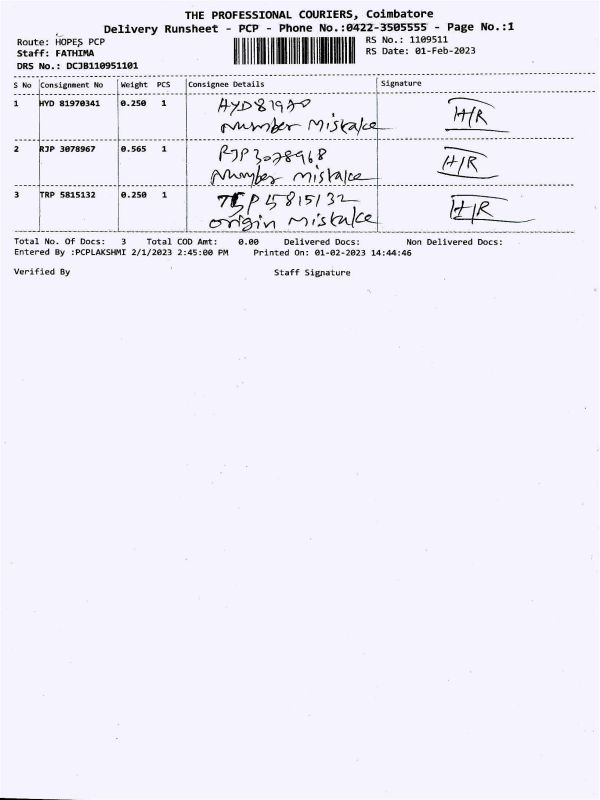 THE PROFESSIONAL COURIERS, Coimbatore
Delivery Runsheet - PCP - Phone No.:0422-3505555 - Page No.:1
Route: HOPES PCP
RS No.: 1109511
Staff: FATHIMA
RS Date: 01-Feb-2023
DRS No.: DCJB110951101
S No Consignment No Weight PCS Consignee Details Signature
1 HYD 81970341 0.250 1 HYD81970 H/R
Number Mistake
2 RJP 3078967 0.565 1 RJP3078968 H/R
Number mistake
3 TRP 5815132 0.250 1 5815132 H/R
origin mistake
Total No. Of Docs: 3 Total COD Amt: 0.00 Delivered Docs: Non Delivered Docs:
Entered By :PCPLAKSHMI 2/1/2023 2:45:00 PM Printed On: 01-02-2023 14:44:46
Verified By Staff Signature